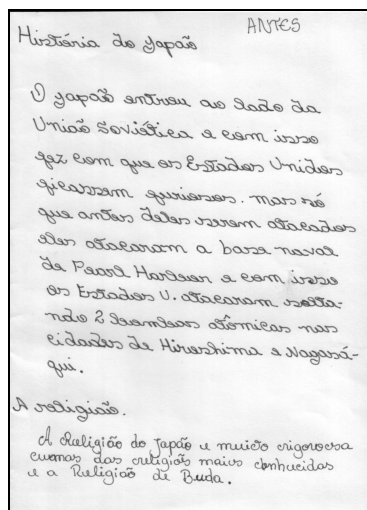 ANTES
História do Japão
O Japão entrou ao lado da
União Soviética e com isso
fez com que os Estados Unidos
ficassem furiosos. mas só
que antes deles serem atacados
eles atacaram a base naval
de Pearl Harbeer e com isso
os Estados U. atacaram solta-
ndo 2 bombas atômicas nas
cidades de Hiroshima e Nagasá-
qui.
A religião.
A Religião do Japão e muito rigorosa
e umas das religiões mais conhecidas
e a Religião de Buda.